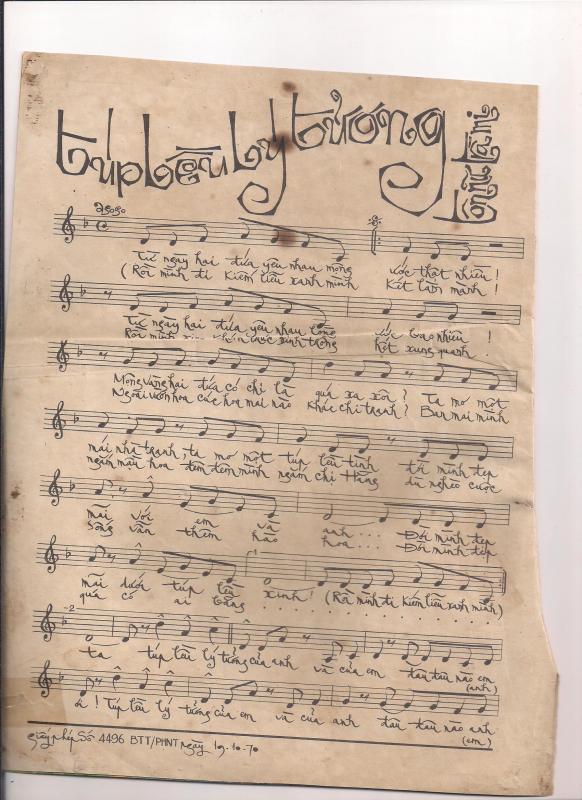 túp lều lý tưởng
agogo
Từ ngày hai đứa yêu nhau mộng ước thật nhiều !
(Rồi mình đi kiếm liễu xanh mình Kết làm mành !
Từ ngày hai đứa yêu nhau lòng ước bao nhiêu !
Rồi mình xin hót xung quanh .
Mộng vàng hai đứa có chi là quá xa xôi ? Ta mơ một
Ngoài vườn hoa cúc hoa mai nào khác chi tranh ? Ban mai mình
mái nhà tranh, ta mơ một túp lều tình đời mình đẹp
ngắm màu hoa đêm đêm mình ngắm chị Hằng dù nghèo cuộc
mãi với em và anh ... Đời mình đẹp
sống vẫn thêm hào hoa ... Đời mình đẹp
mãi dưới túp lều xinh ! (Rồi mình đi kiếm liễu xanh mình)
quá có ai bằng ..........
ta túp lều lý tưởng của anh và của em đâu đâu nào em
(anh)
ơi ! Túp lều lý tưởng của em và của anh đâu đâu nào anh
(em)
giấy phép Số 4496 BTT/PHNT ngày 19-10-70